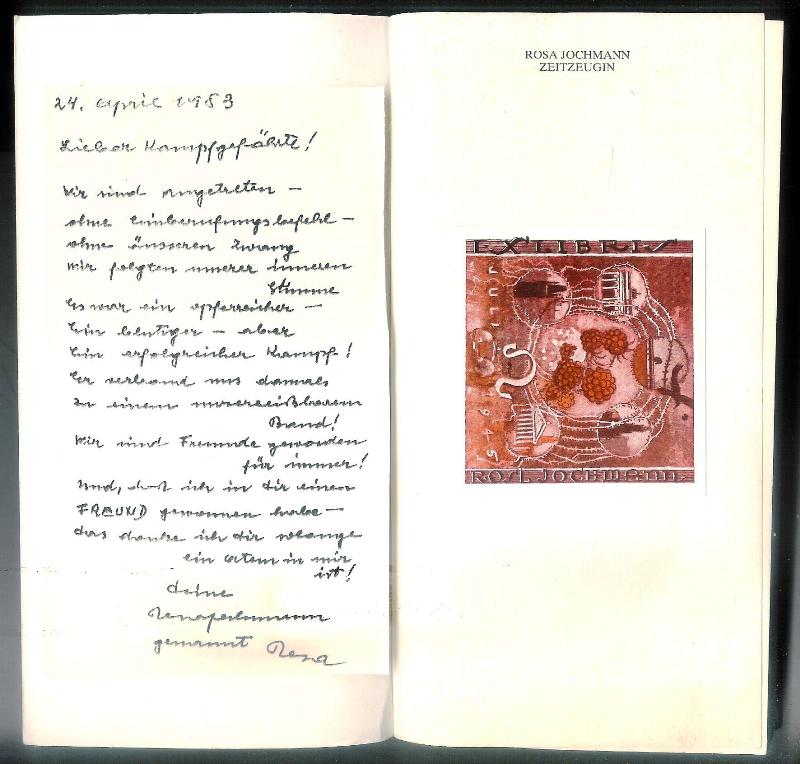 24. April 1983
Lieber Kampfgefährte!
Wir sind angetreten —
ohne Einberufungsbefehl —
ohne äusseren Zwang
Wir folgten unserer inneren
Stimme
Es war ein opferreicher —
Ein blutiger — aber
Ein erfolgreicher Kampf!
Er verband uns damals
zu einem unzerreißbarem
Band!
Wir sind Freunde geworden
für immer!
Und, daß ich in dir einen
FREUND gewonnen habe —
das danke ich dir solange
ein Atem in mir
ist!
deine
Rosa Jochmann
genannt Rosa
ROSA JOCHMANN
ZEITZEUGIN
EX LIBRIS
JULI 1945
ROSL JOCHMANN